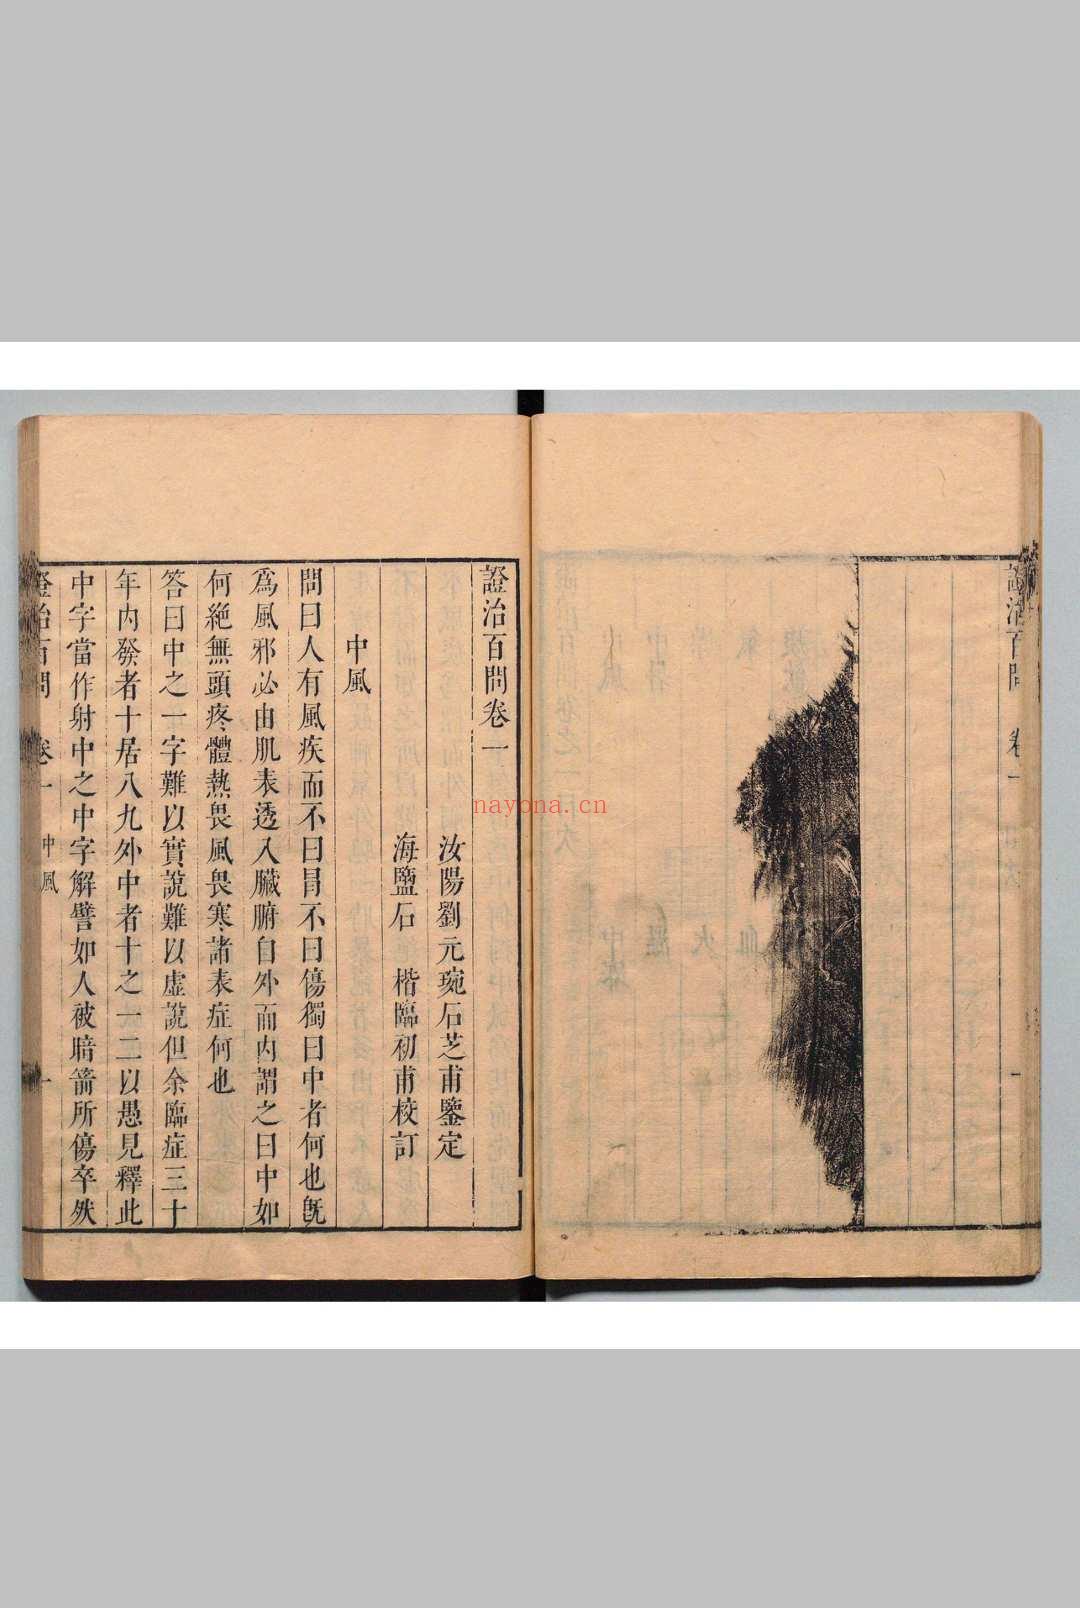 證治百問 卷一 目次 一
證治百問卷一
汝陽劉元琬石芝甫鑒定
海鹽石 楷臨初甫校訂
中風
問曰人有風疾而不曰冒不曰傷獨曰中者何也旣
爲風邪必由肌表透入臟腑自外而內謂之曰中如
何絕無頭疼體熱畏風畏寒諸表症何也
答曰中之一字難以實說難以虛說但余臨症三十
年內發者十居八九外中者十之一二以愚見釋此
中字當作射中之中字解譬如人被暗箭所傷卒然
證治百問 卷一 中風 一
nayona.cn